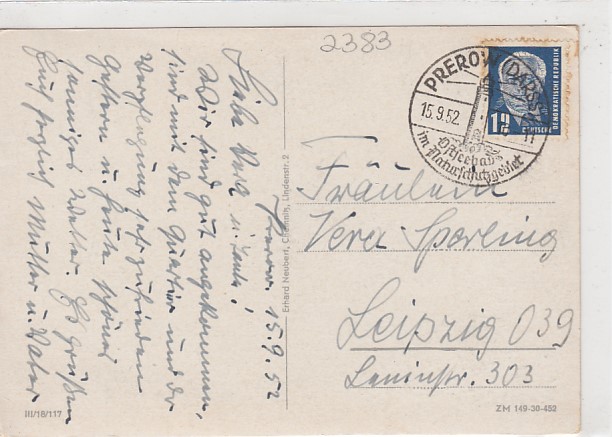 2383
Prerow. 15.9.52
Liebe Vera u. Tante!
Wir sind gut angekommen,
sind mit dem Quartier und der
Verpflegung sehr zufrieden
Gestern u. heute schönes
sonniges Wetter. Es grüßen
Euch herzlich Mutter u. Vater
III/18/117
Erhard Neubert, Chemnitz, Lindenstr. 2
PREROW (DARSS)
15.9.52
Ostseebad
im Naturschutzgebiet
12
DEUTSCHE
DEMOKRATISCHE REPUBLIK
Fräulein
Vera Sperling
Leipzig O39
Leninstr. 303
ZM 149-30-452